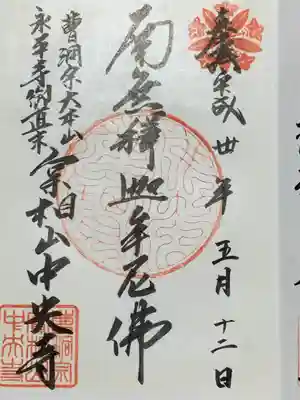 奉拝
平成卅年
五月十二日
南無釋迦牟尼佛
曹洞宗大本山
永平寺御直末
宗柏山中央寺